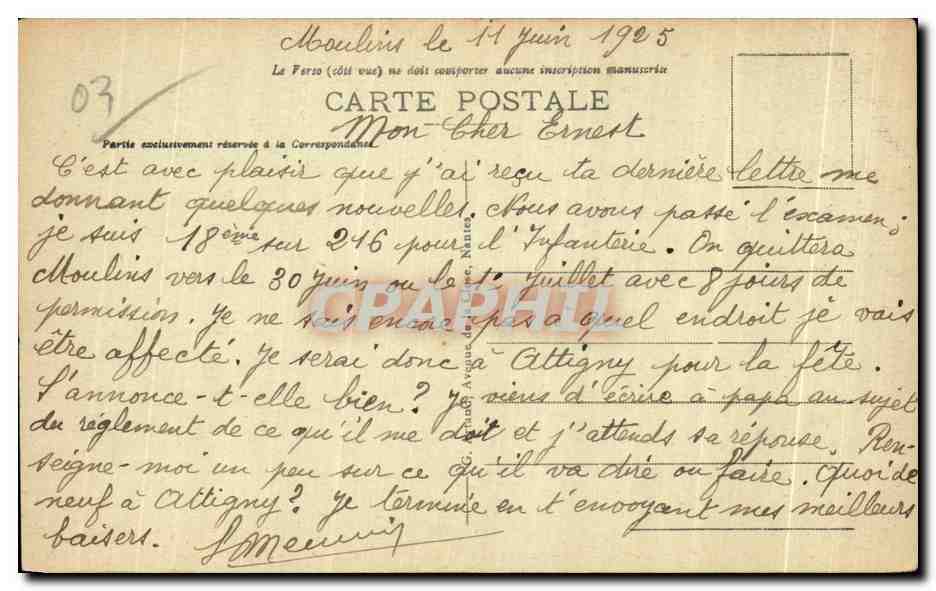 Moulins le 11 Juin 1925
Le Verso (côté vue) ne doit comporter aucune inscription manuscrite
03
CARTE POSTALE
Mon Cher Ernest
Partie exclusivement réservée à la Correspondance
C'est avec plaisir que j'ai reçu ta dernière lettre me
donnant quelques nouvelles. Nous avons passé l'examen ;
je suis 18ème sur 216 pour l'Infanterie. On quittera
Moulins vers le 30 Juin ou le 1er Juillet avec 8 jours de
permission. Je ne sais encore pas à quel endroit je vais
être affecté. Je serai donc à Attigny pour la fête.
S'annonce-t-elle bien? Je viens d'écrire à papa au sujet
du réglement de ce qu'il me doit et j'attends sa réponse. Ren-
seigne-moi un peu sur ce qu'il va dire ou faire. Quoi de
neuf à Attigny? Je termine en t'envoyant mes meilleurs
baisers.
Avenue de Nantes
CPAPHIL